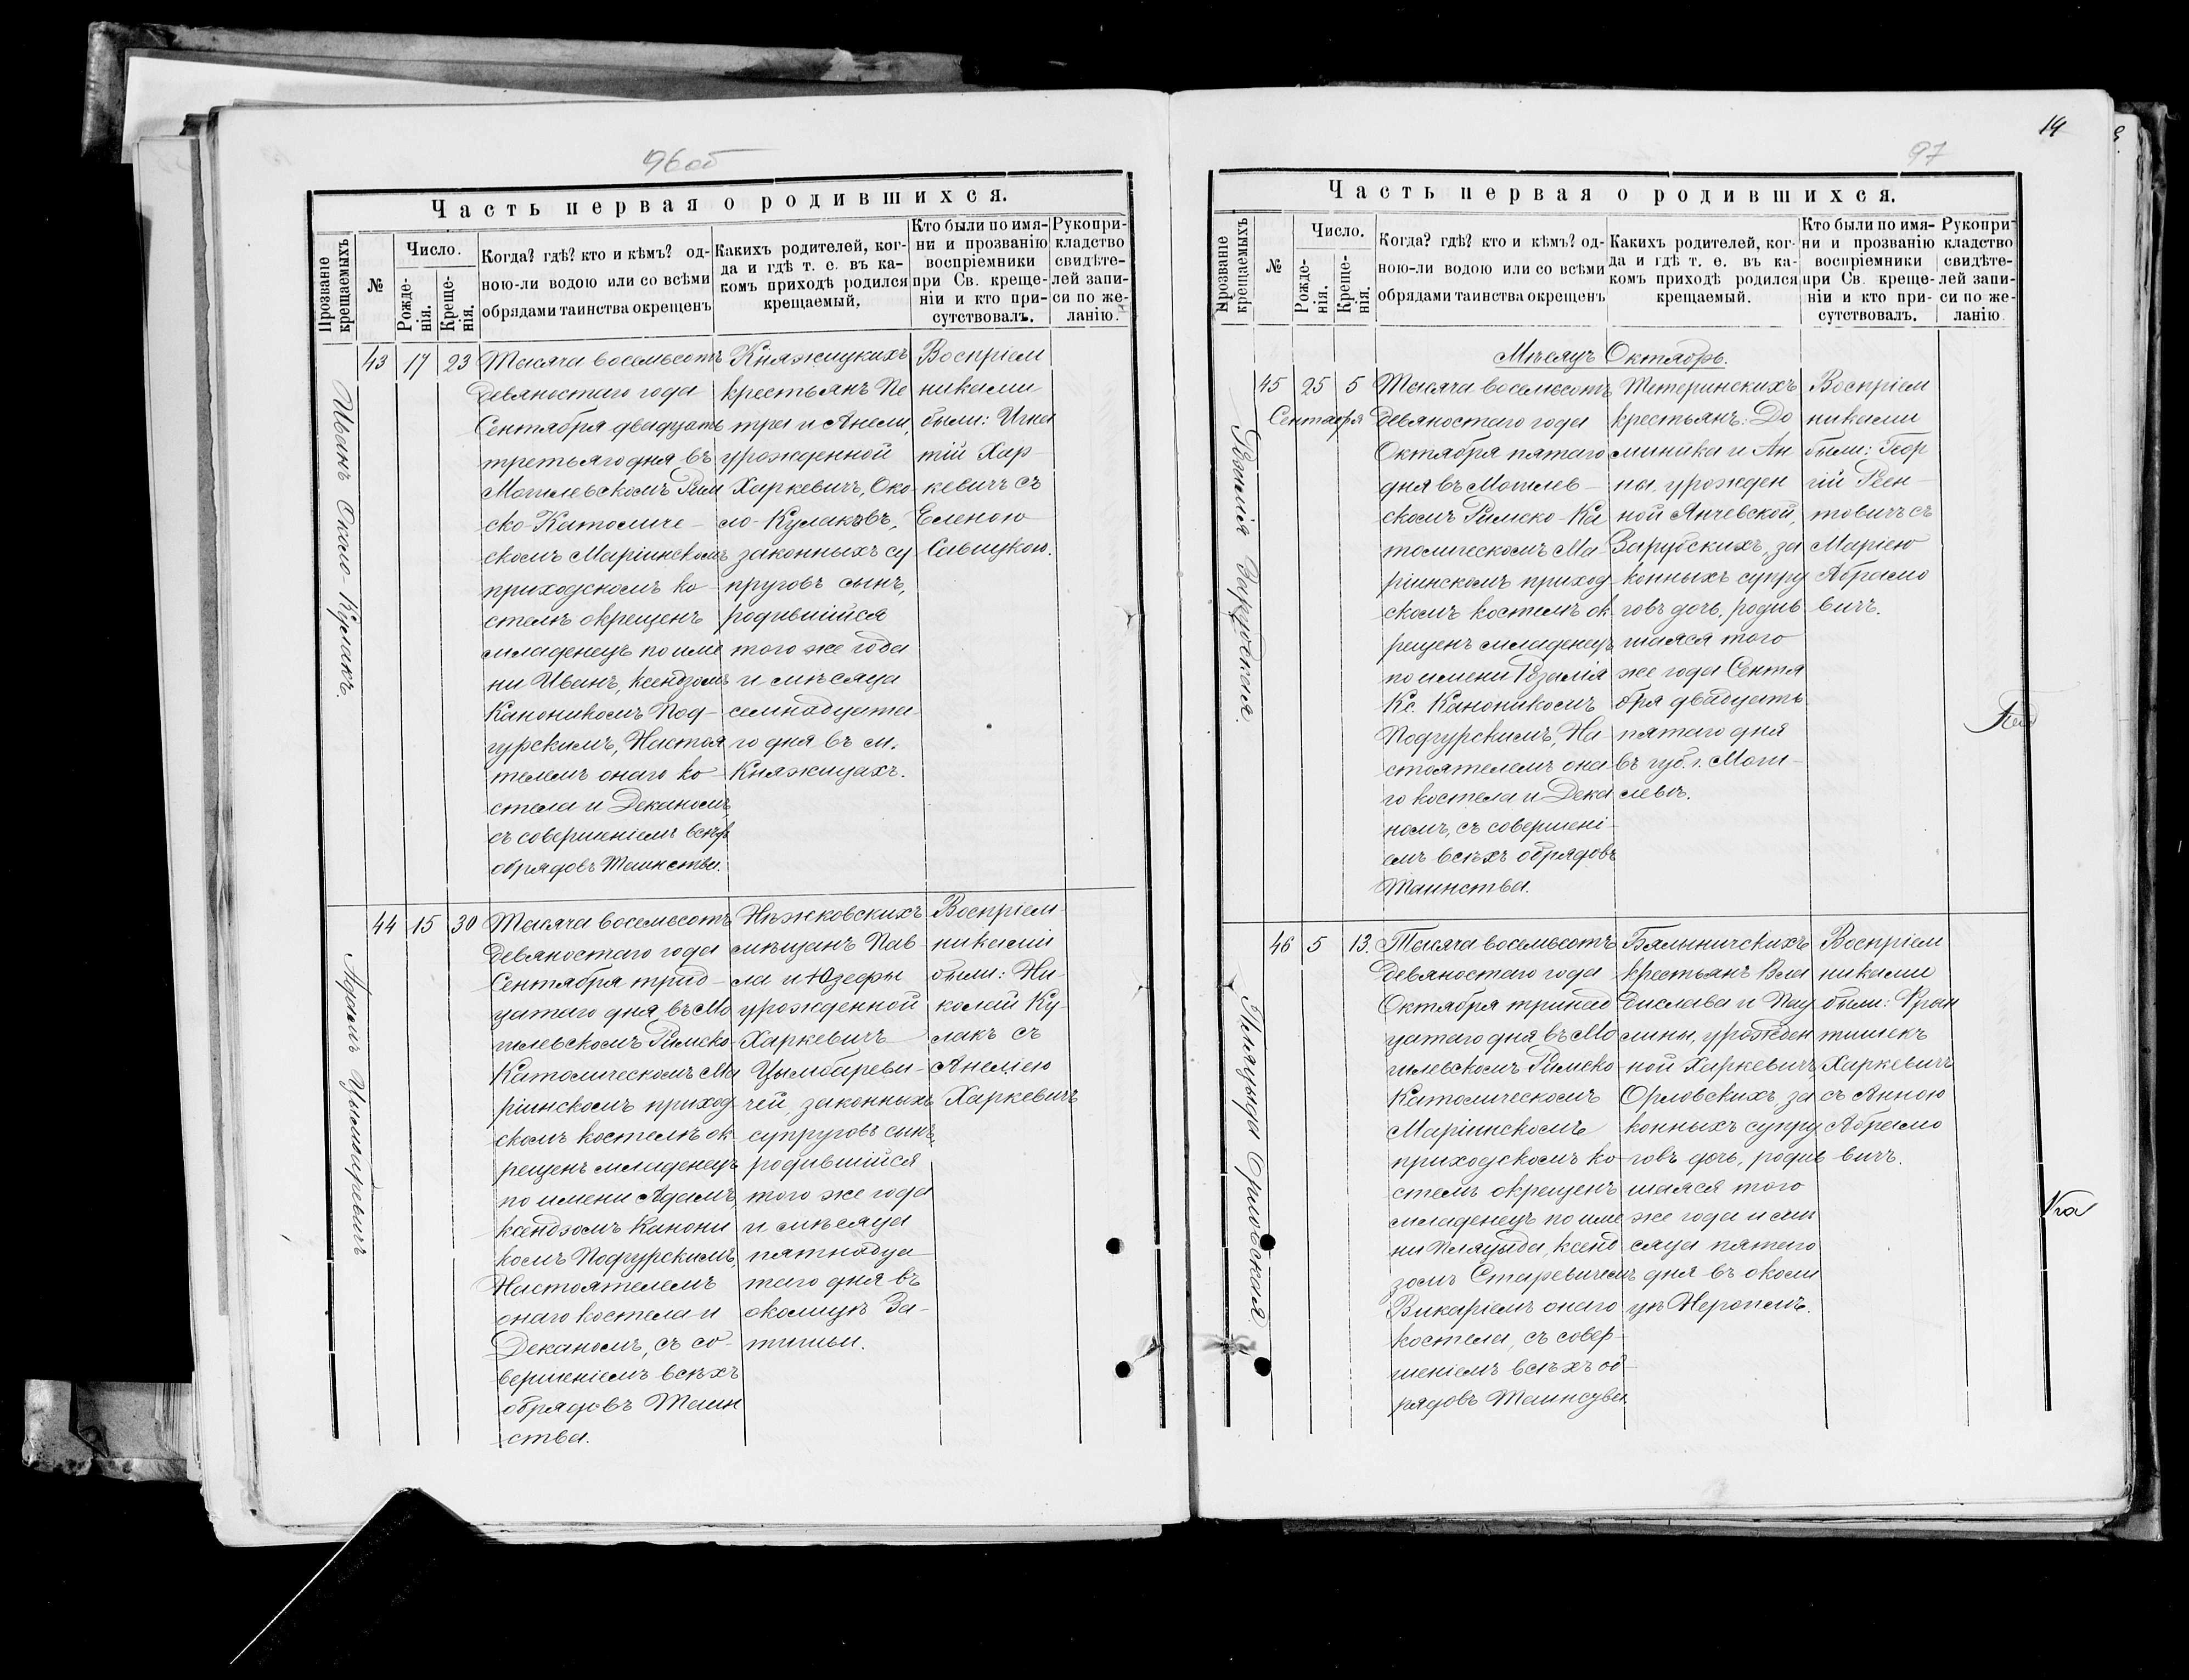 96об
Часть первая о родившихся.
Прозваніе крещаемыхъ
№
Число.
Рожде-
нія.
Креще-
нія.
Когда? гдѣ? кто и кѣмъ? од-
ною-ли водою или со всѣми
обрядами таинства окрещенъ
Какихъ родителей, ког-
да и гдѣ т. е. въ ка-
комъ приходѣ родился
крещаемый.
Кто были по имя-
ни и прозванію
воспріемники
при Св. креще-
ніи и кто при-
сутствовалъ.
Рукопри-
кладство
свидѣте-
лей запи-
си по же-
ланію.
Иванъ Около-Кулакъ.
43
17
23
Тысяча восемьсотъ
девяностаго года
Сентября двадцать
третьяго дня въ
Могилевскомъ Рим
ско-Католиче-
скомъ Маріинскомъ
приходскомъ ко-
стелѣ окрещенъ
младенецъ по име
ни Иванъ, ксендзомъ
Каноникомъ Под-
гурскимъ, Настоя
телемъ онаго ко-
стела и Деканомъ,
съ совершеніемъ всѣхъ
обрядовъ Таинства.
Княжицкихъ
крестьянъ Пе
тра и Анели,
урожденной
Харкевичъ, Око-
ло-Кулаковъ,
законныхъ су
пруговъ сынъ,
родившійся
того же года
и мѣсяца
семнадцата-
го дня въ м.
Княжицахъ.
Воспріем
никами
были: Игна
тій Хар-
кевичъ съ
Еленою
Савицкою.
Адамъ Цымбаревичъ
44
15
30
Тысяча восемьсотъ
девяностаго года
Сентября трид-
цатаго дня въ Мо
гилевскомъ Римско-
Католическомъ Ма
ріинскомъ приход-
скомъ костелѣ ок
рещенъ младенецъ
по имени Адамъ,
ксендзомъ Канони
комъ Подгурскимъ,
Настоятелемъ
онаго костела и
Деканомъ, съ со-
вершеніемъ всѣхъ
обрядовъ Таин
ства.
Нѣжковскихъ
мѣщанъ Пав-
ла и Юзефы
урожденной
Харкевичъ
Цымбареви-
чей, законныхъ
супруговъ сынъ,
родившійся
того же года
и мѣсяца
пятнадца-
таго дня въ
околицѣ За-
тишьи.
Воспріем-
никами
были: Ни-
колай Ку-
лакъ съ
Анеліею
Харкевичъ
14
97
Часть первая о родившихся.
Прозваніе крещаемыхъ
№
Число.
Рожде-
нія.
Креще-
нія.
Когда? гдѣ? кто и кѣмъ? од-
ною-ли водою или со всѣми
обрядами таинства окрещенъ
Какихъ родителей, ког-
да и гдѣ т. е. въ ка-
комъ приходѣ родился
крещаемый.
Кто были по имя-
ни и прозванію
воспріемники
при Св. креще-
ніи и кто при-
сутствовалъ.
Рукопри-
кладство
свидѣте-
лей запи-
си по же-
ланію.
Мѣсяцъ Октябрь.
Розалія Зарубская.
45
25
5
Сентября
Тысяча восемьсотъ
девяностаго года
Октября пятаго
дня въ Могилев-
скомъ Римско-Ка
толическомъ Ма-
ріинскомъ приход-
скомъ костелѣ ок
рещенъ младенецъ
по имени Розалія
Кс. Каноникомъ
Подгурскимъ, На-
стоятелемъ она-
го костела и Дека
номъ, съ совершені-
емъ всѣхъ обрядовъ
Таинства.
Тетеринскихъ
крестьянъ: До
миника и Ан
ны, урожден
ной Янчевской,
Зарубскихъ, за
конныхъ супру
говъ дочь, родив
шаяся того
же года Сентя
бря двадцать
пятаго дня
въ губ. г. Моги-
левѣ.
Воспріем
никами
были: Геор
гій
товичъ съ
Маріею
Абрамо
вичъ.
Пляцыда Орловская.
46
5
13.
Тысяча восемьсотъ
девяностаго года
Октября тринад
цатаго дня въ Мо
гилевскомъ Римско
Католическомъ
Маріинскомъ
приходскомъ ко
стелѣ окрещенъ
младенецъ по име
ни Пляцыда, ксенд
зомъ Старевичемъ
Викаріемъ онаго
костела, съ совер-
шеніемъ всѣхъ об-
рядовъ Таинсгва.
Бялыничскихъ
крестьянъ Вла
дислава и Пау
лины, урожден
ной Харкевичъ,
Орловскихъ, за
конныхъ супру
говъ дочь, родив
шаяся того
же года и мѣ
сяца пятаго
дня въ околи
цѣ Неропелъ.
Воспріем
никами
были: Фран
тишекъ
Харкевичъ
съ Анною
Абрамо
вичъ.